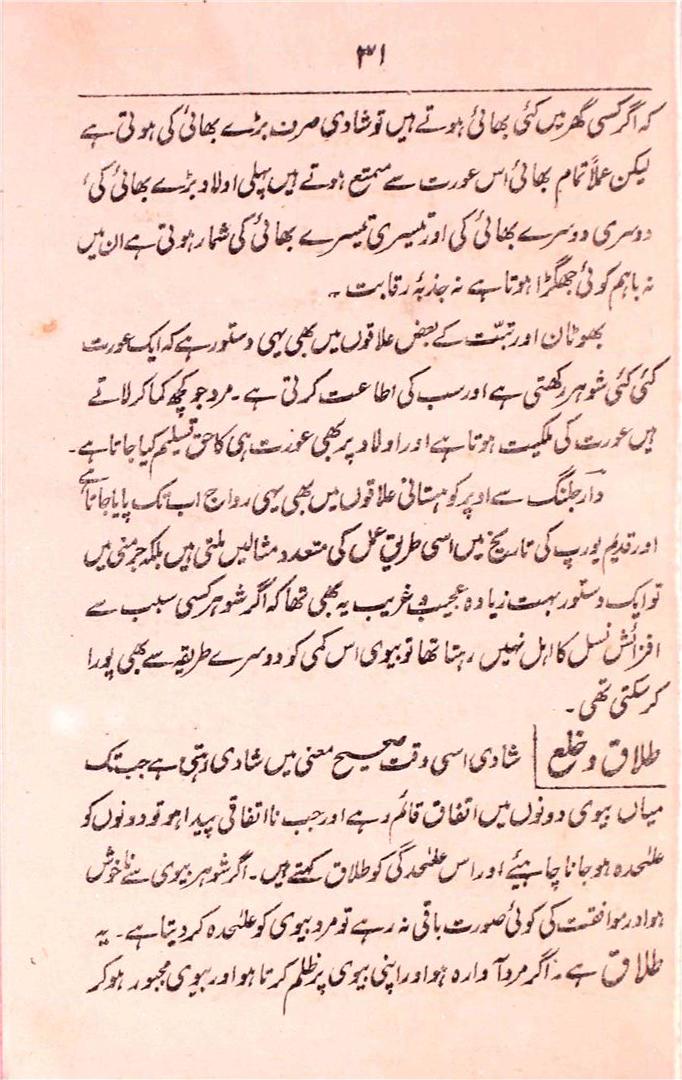 ۳۱
کہ اگر کسی گھر میں کئی بھائی ہوتے ہیں تو شادی صرف بڑے بھائی کی ہوتی ہے
لیکن عملاً تمام بھائی اس عورت سے متمتع ہوتے ہیں پہلی اولاد بڑے بھائی کی،
دوسری دوسرے بھائی کی اور تیسری تیسرے بھائی کی شمار ہوتی ہے ان میں
نہ باہم کوئی جھگڑا ہوتا ہے نہ جذبۂ رقابت ۔
بھوٹان اور تبّت کے بعض علاقوں میں بھی یہی دستور ہے کہ ایک عورت
کئی کئی شوہر رکھتی ہے اور سب کی اطاعت کرتی ہے ۔ مرد جو کچھ کما کر لاتے
ہیں عورت کی ملکیت ہوتا ہے اور اولاد پر بھی عورت ہی کا حق تسلیم کیا جاتا ہے ۔
دارجلنگ سے اوپر کوہستانی علاقوں میں بھی یہی رواج اب تک پایا جاتا ہے
اور قدیم یورپ کی تاریخ میں اسی طریق عمل کی متعدد مثالیں ملتی ہیں بلکہ جرمنی میں
تو ایک دستور بہت زیادہ عجیب و غریب یہ بھی تھا کہ اگر شوہر کسی سبب سے
افزائش نسل کا اہل نہیں رہتا تھا تو بیوی اس کمی کو دوسرے طریقہ سے بھی پورا
کر سکتی تھی ۔
طلاق و خلع شادی اسی وقت صحیح معنی میں شادی رہتی ہے جب تک
میاں بیوی دونوں میں اتفاق قائم رہے اور جب نااتفاقی پیدا ہو تو دونوں کو
علٰحدہ ہو جانا چاہیئے اور اس علٰحدگی کو طلاق کہتے ہیں ۔ اگر شوہر بیوی سے ناخوش
ہو اور موافقت کی کوئی صورت باقی نہ رہے تو مرد بیوی کو علٰحدہ کر دیتا ہے ۔ یہ
طلاق ہے ۔ اگر مرد آوارہ ہو اور اپنی بیوی پر ظلم کرتا ہو اور بیوی مجبور ہو کر